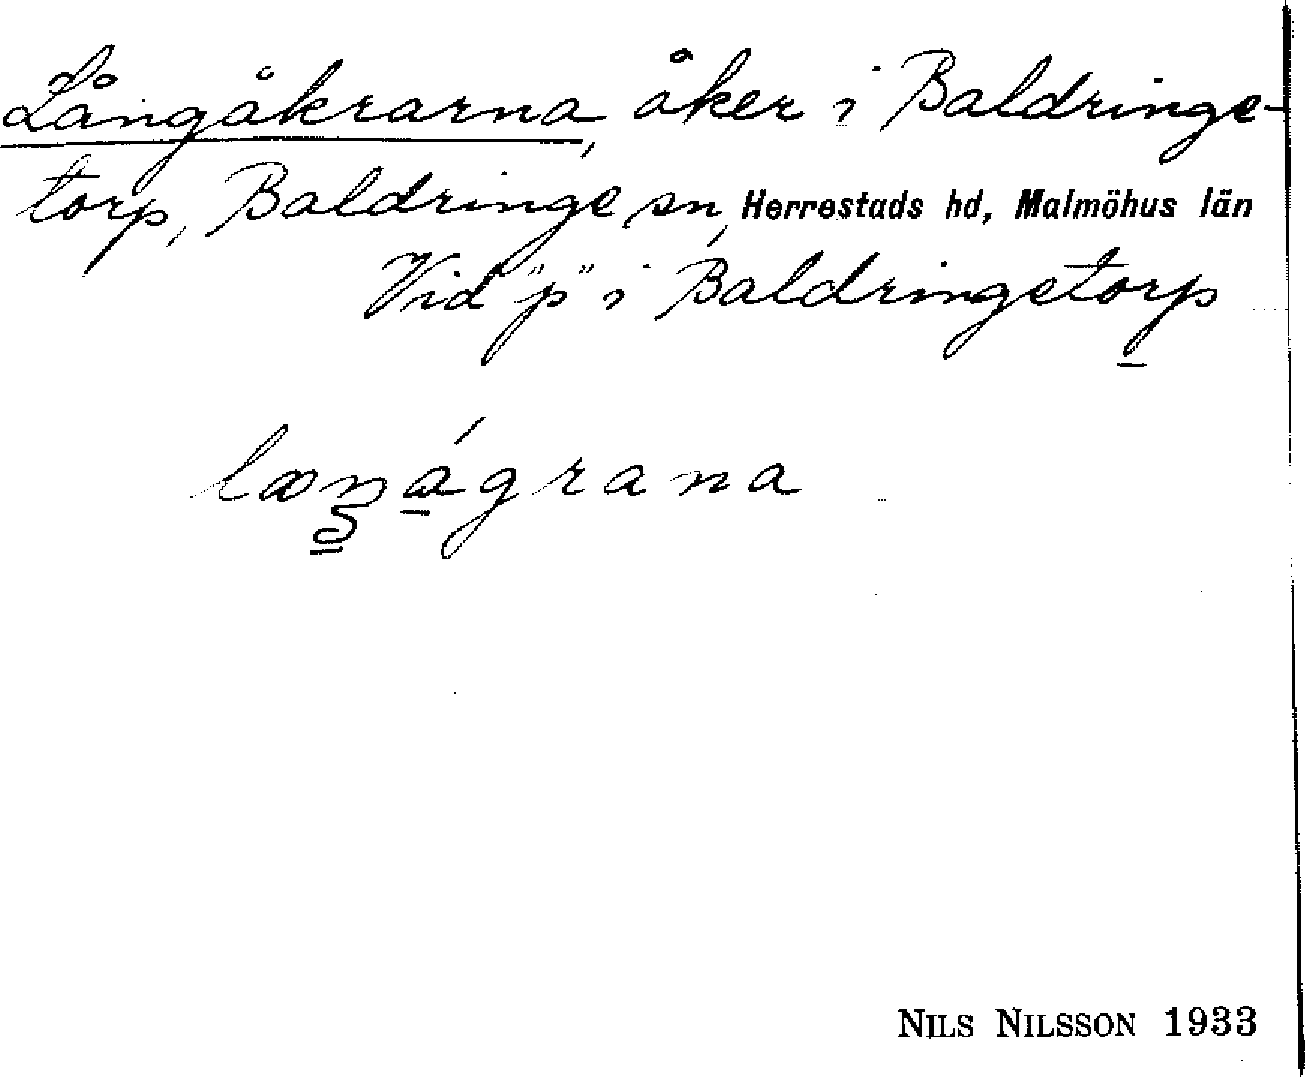 Långåkrarna, åker i Baldringe-
torp, Baldringe sn, Herrestads hd, Malmöhus län
Vid "p" i Baldringetorp
NILS NILSSON 1933